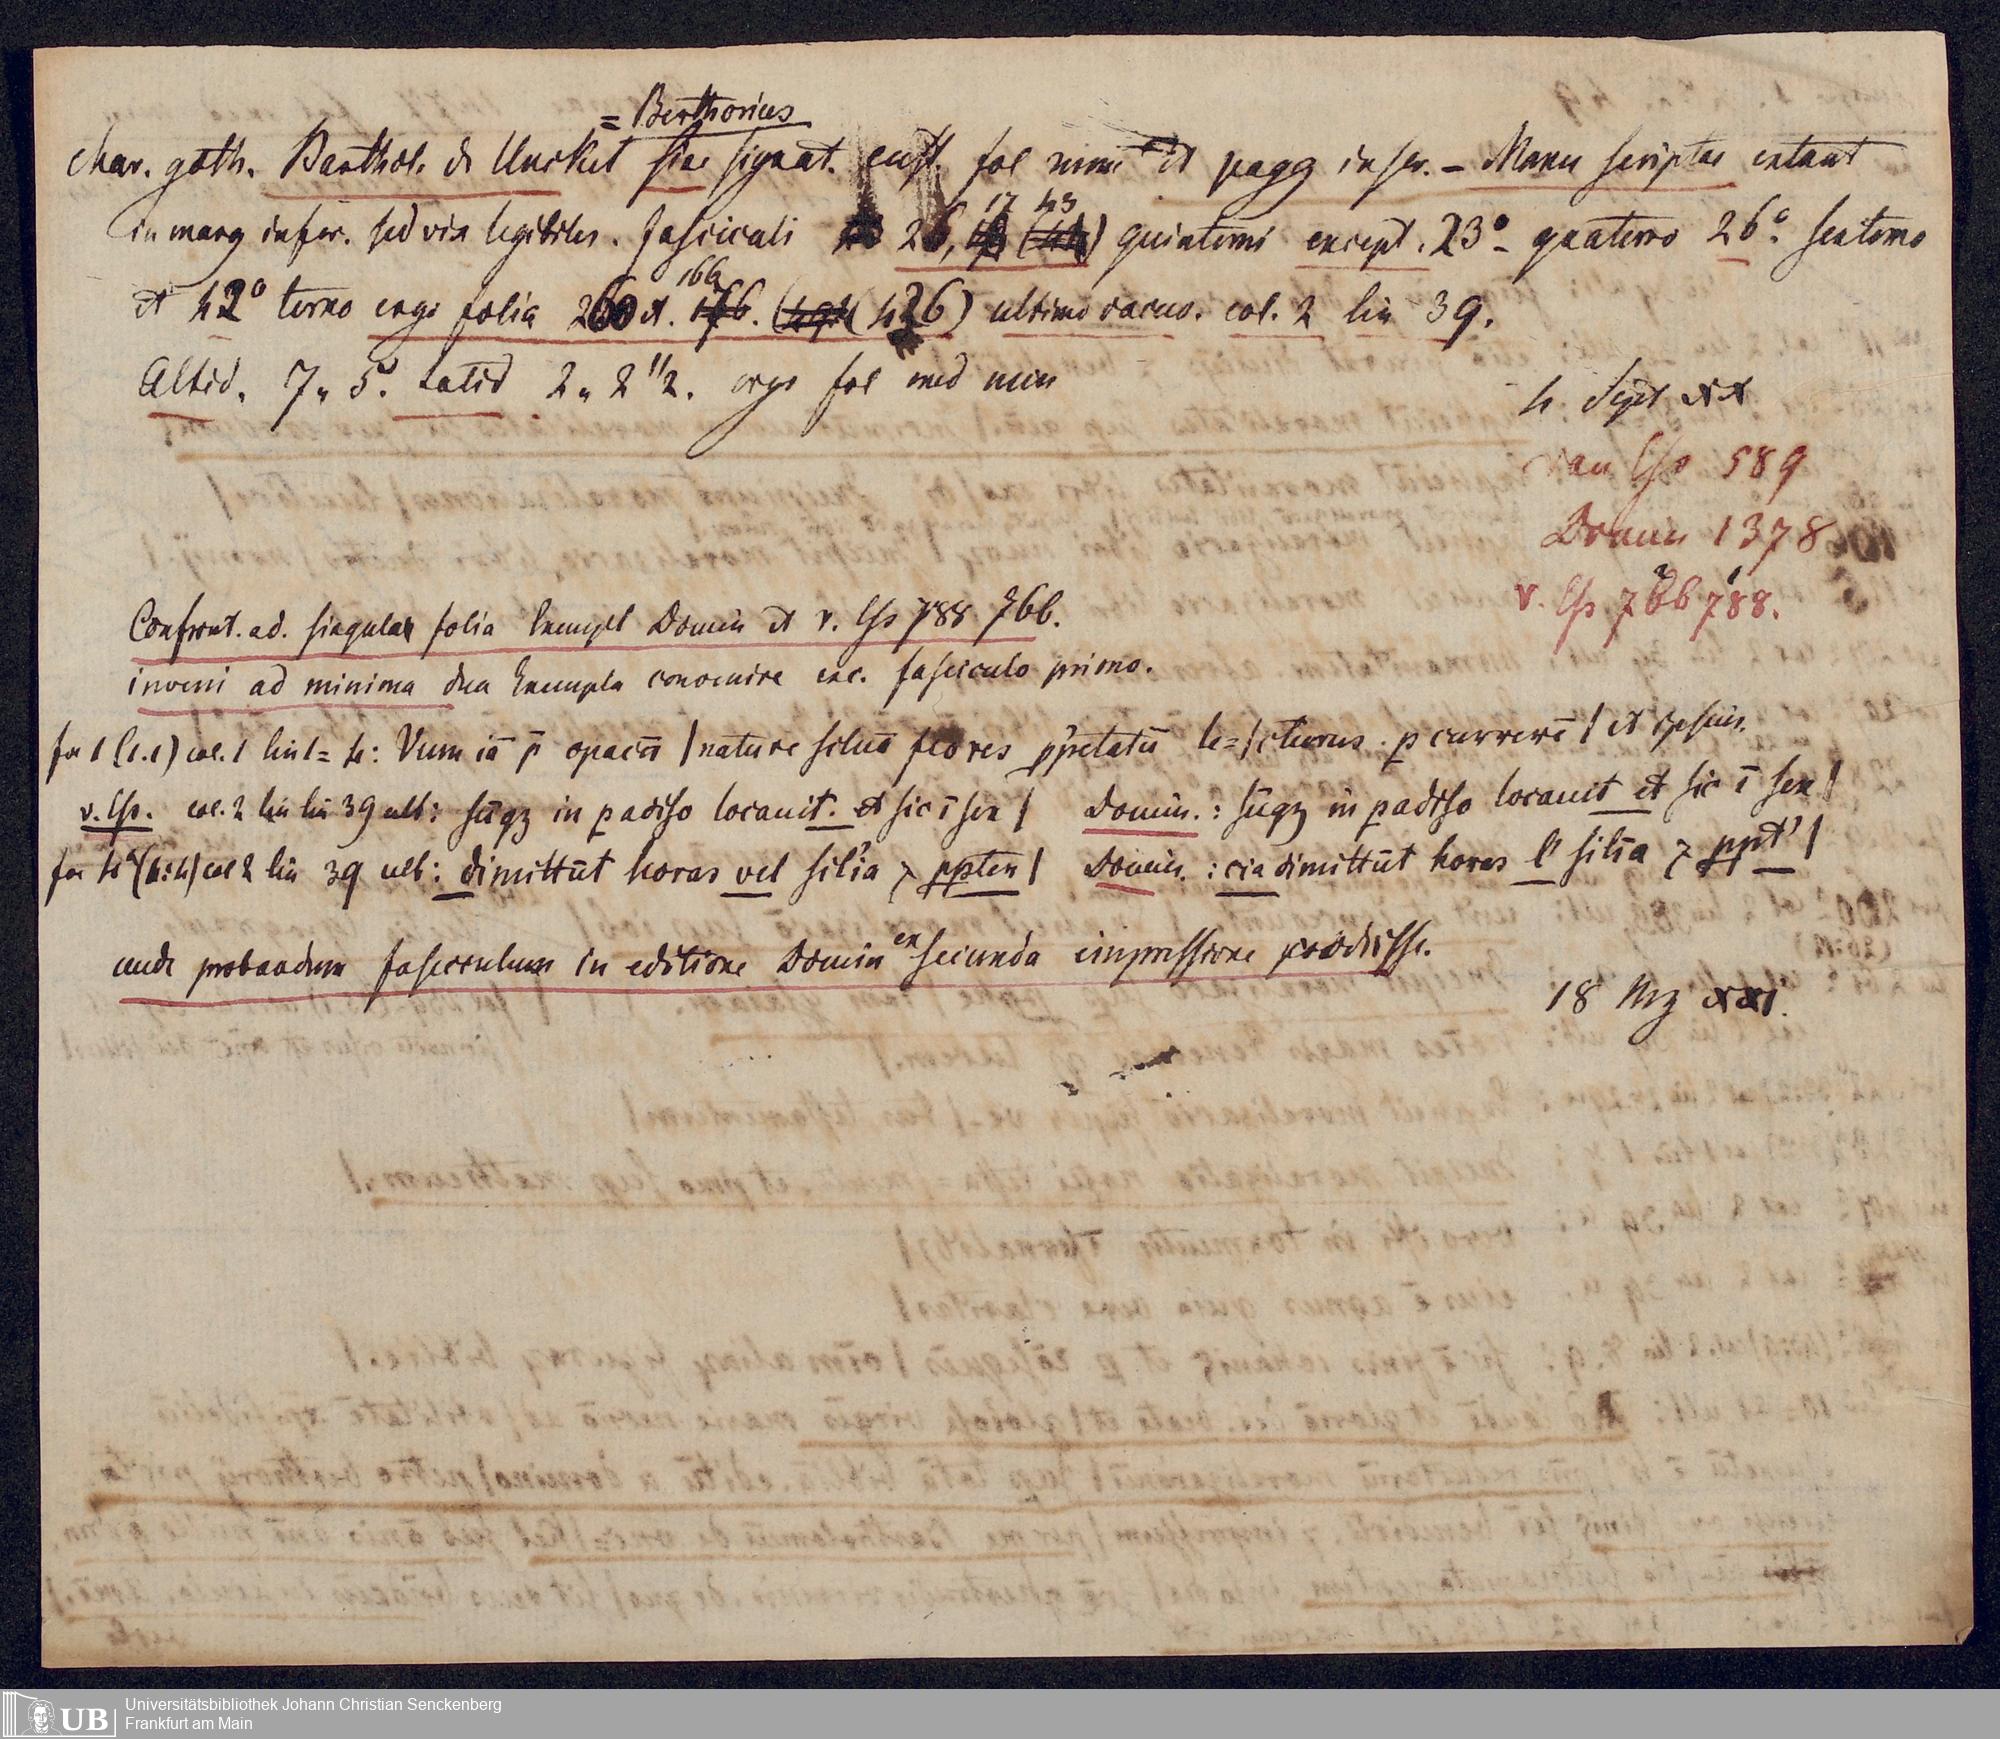 = Berthorius
char. goth. Barthol. de Unckel sine signat. cust. fol num et pagg inscr. – Manu scriptae extant
in marg infer. sed vix legibiles. fasciculi 26, 17 (43) quinterni except. 23° – quaterno 26° sexterno
et 42° terno ergo folia 260 et. 166. (426) ultimo vacuo. col. 2 lin 39.
Altid. 7„ 5. Latid 2„ 2 1/2. ergo fol med min
4 Sept XX
van Ess 589
Domin 1378
v. Ess 766 788.
Confront. ad. singula folia Exempl Domin et v. Ess 788 766.
inveni ad minima dua Exempla convenire exc. fasciculo primo.
fol 1 (1.1) col. 1 lin 1=4: Dum iā p̄ opacū / nature siluā flores pp̄rietatū le=/cturus . p currerē / et ipsius.
v. Ess. col. 2 lin 39 ult: sūqz in padiso locauit. et sic ī sex / Domin. : sūqz in padiso locauit et sic ī sex /
fol 4 (1:4) col 2 lin 39 ult: dimittūt horas vel silia ⁊ ppten / Domin. : cia dimittūt horas l' silia ⁊ ppt' /
unde probandum fasciculum in editione Domin ex secunda impressione prodiisse.
18 Mrz XXI.
Universitätsbibliothek Johann Christian Senckenberg
UB Frankfurt am Main